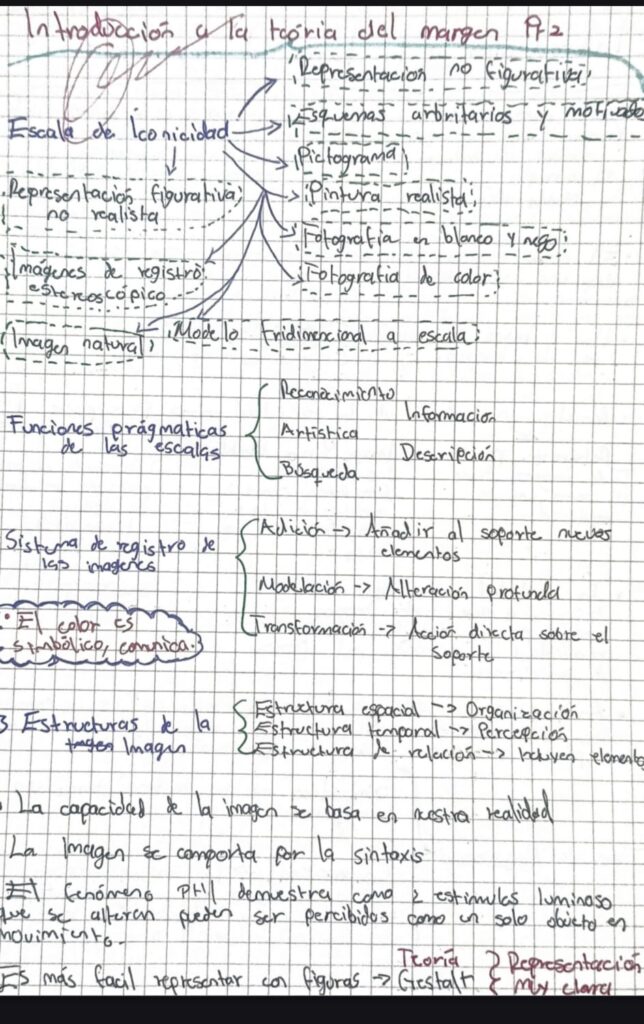 Introducción a la teoria del margen Pt2
Representacion no figurativa
Esquemas arbritarios y motivado
Escala de Iconicidad
Pictograma
Representación figurativa
no realista
Pintura realista
Fotografia en blanco y nego
Imágenes de registro
estereoscópico
Fotografia de color
Imagen natural
Modelo tridimencional a escala
Reconocimiento
Informacion
Funciones prágmaticas
de las escalas
Artistica
Descripción
Búsqueda
Adición → Añadir al soporte nuevos
elementos
Sistema de registro de
las imagenes
Modelación → Alteración profunda
• El color es
simbólico, comunica.
Transformación → Acción directa sobre el
soporte
3 Estructuras de la
Imagen
Estructura espacial → Organización
Estructura temporal → Percepción
Estructura de relación → Incluyen elemento
La capacidad de la imagen se basa en nuestra realidad
La Imagen se comporta por la sintaxis
El fenómeno PHI demuestra como 2 estimulos luminoso
que se alteran pueden ser percibidos como un solo objeto en
movimiento.
Es más facil representar con figuras → Teoría
Gestalt
Representación
muy clara